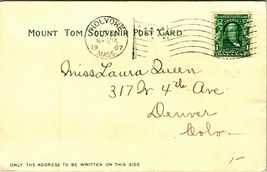 MOUNT TOM SOUVENIR POST CARD
HOLYOKE
8-30A
19 07
MASS.
Miss Laura Queen
317 W 4th Ave
Denver
Colo.
ONLY THE ADDRESS TO BE WRITTEN ON THIS SIDE
1-